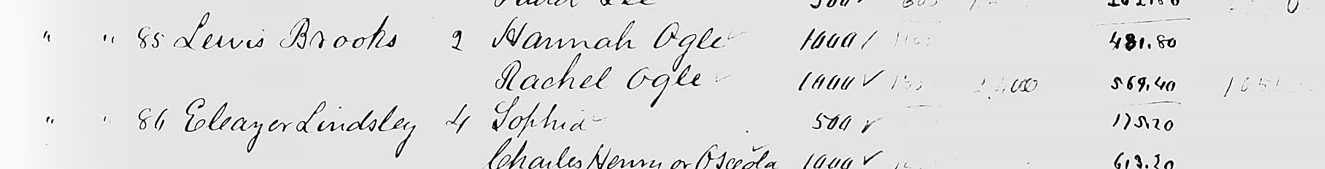 " " 85 Lewis Brooks 2 Hannah Ogle 1000 481.80
Rachel Ogle 1000 ✓ 2,000 569.40
" " 86 Eleazer Lindsley 4 Sophia 500 ✓ 175.20
Charles Henry or Osceola 1000 ✓ 613.20